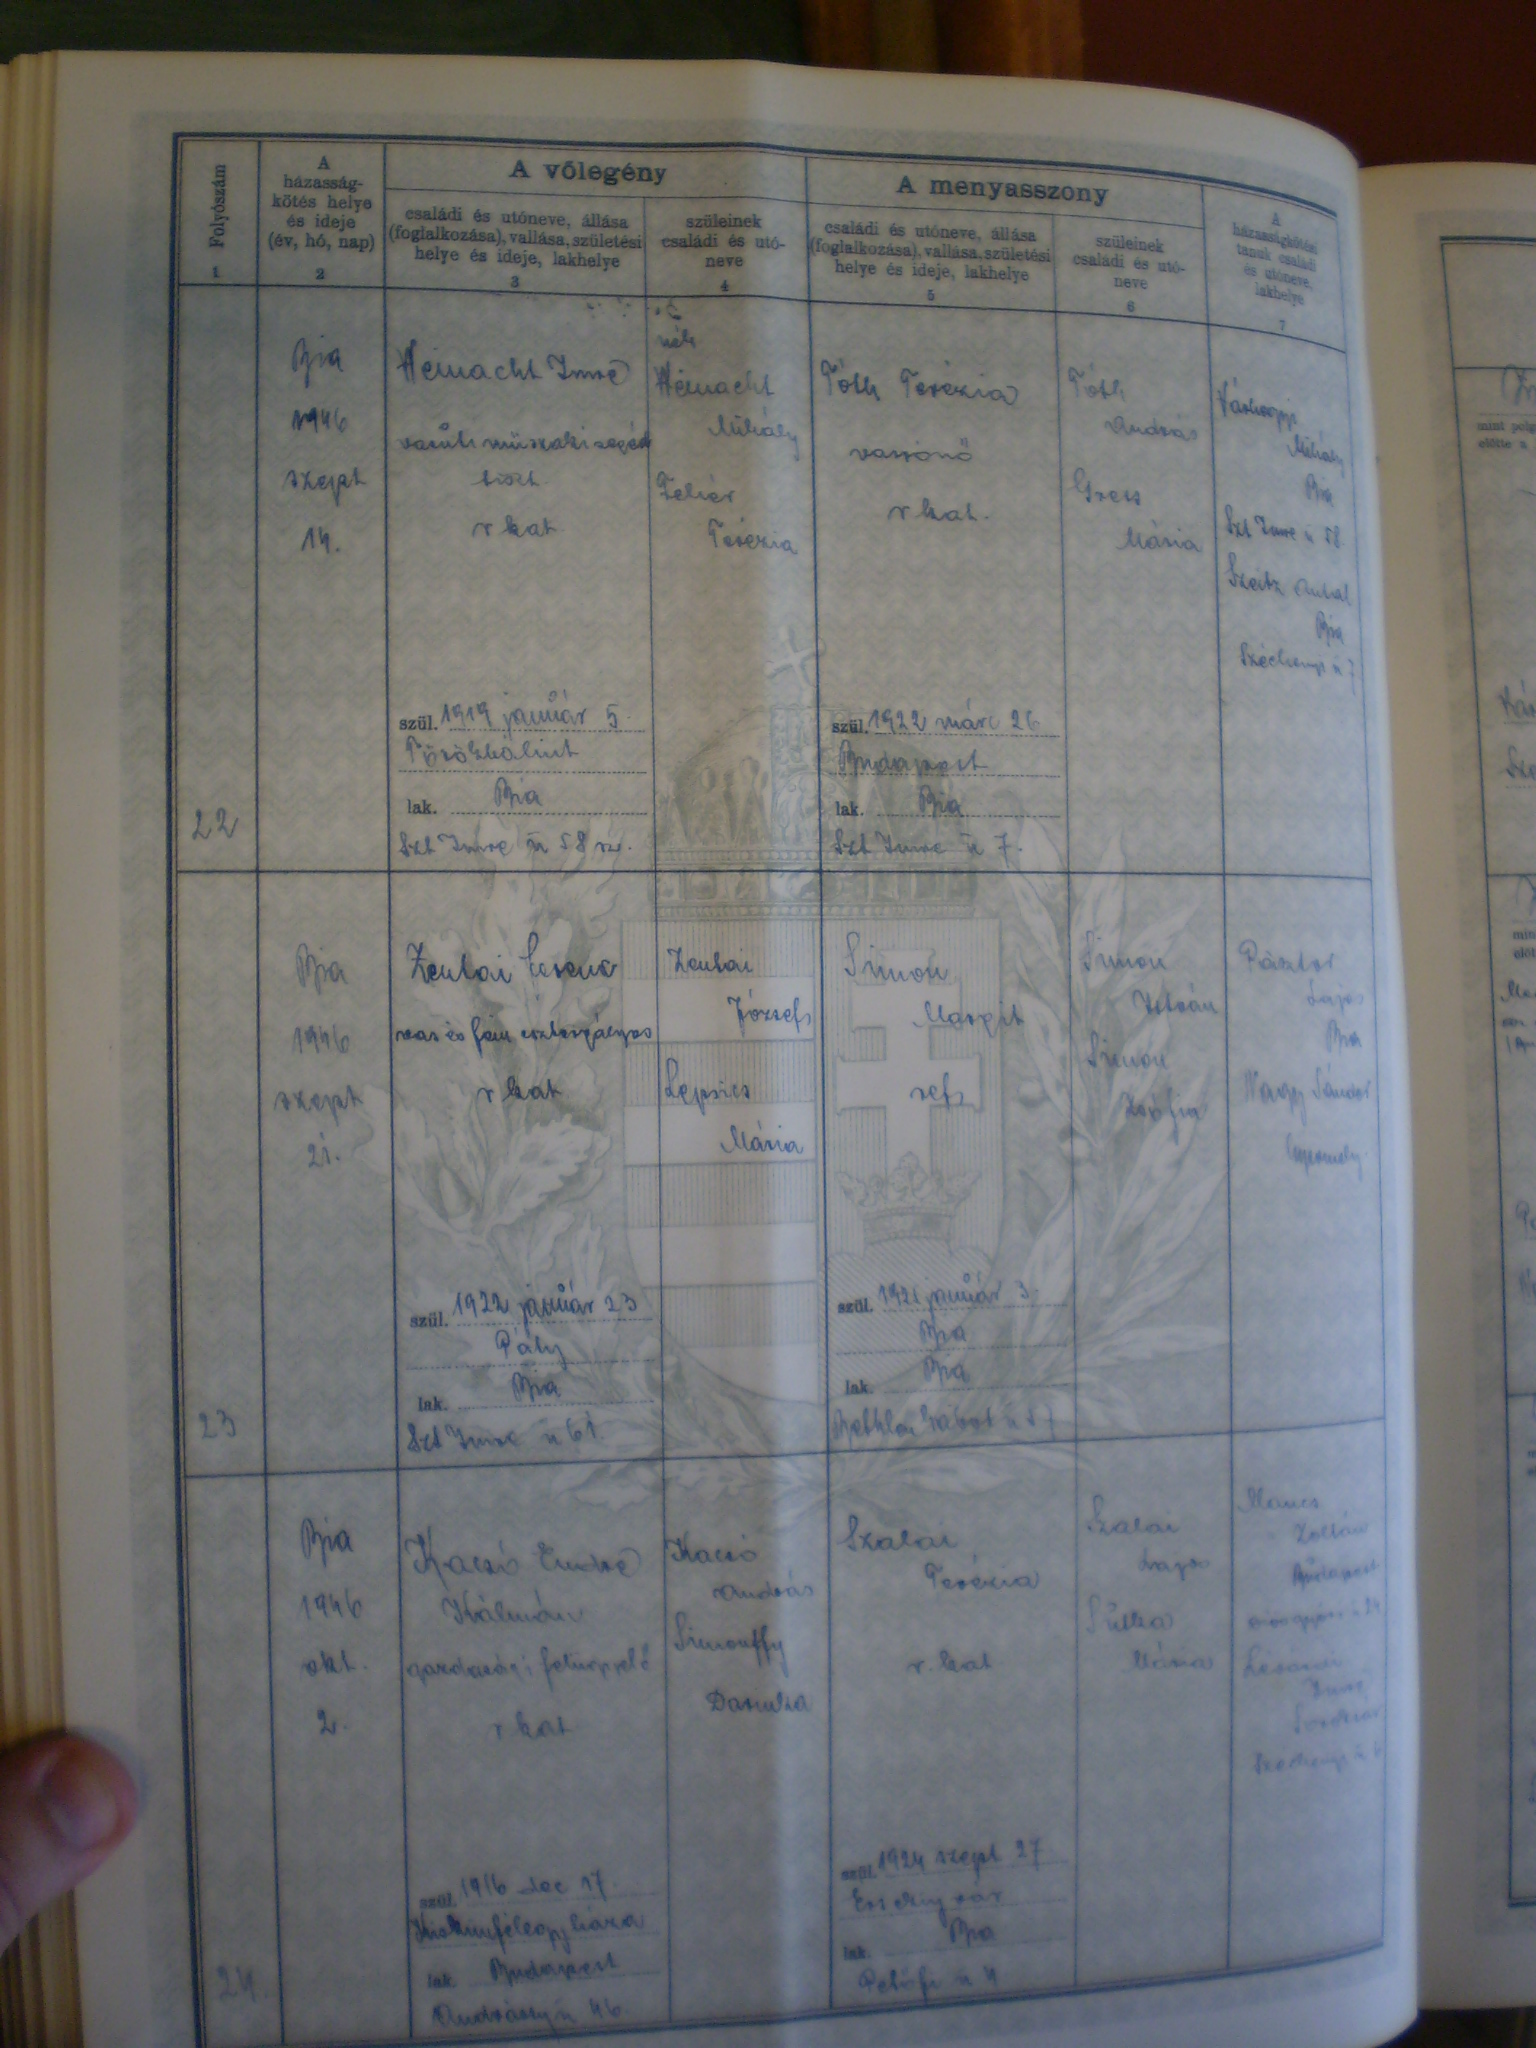 Folyószám
1
A
házasság-
kötés helye
és ideje
(év, hó, nap)
2
A vőlegény
családi és utóneve, állása
(foglalkozása), vallása, születési
helye és ideje, lakhelye
3
szüleinek
családi és utó-
neve
4
A menyasszony
családi és utóneve, állása
(foglalkozása), vallása, születési
helye és ideje, lakhelye
5
szüleinek
családi és utó-
neve
6
A
házasságkötési
tanuk családi
és utóneve,
lakhelye
7
22
Bia
1946
szept
14.
Heinacht Imre
tiszt
r kat
szül. 1919 január 5.
Törökbálint
lak. Bia
Szt Imre u 58 sz.
néh
Heinacht
Mihály
Fehér
Terézia
Tóth Terézia
varrónő
r kat.
szül. 1922 márc 26
Budapest
lak. Bia
Szt Imre u 7.
Tóth
András
Mária
Mihály
Bia
Szt Imre u 58.
Szeitz Antal
Bia
Széchenyi u 7
23
Bia
1946
szept
21.
Zentai Ferenc
vas és fém esztergályos
r kat
szül. 1922 január 23
Pály
lak. Bia
Szt Imre u 61.
Zentai
József
Lepsics
Mária
Simon
Margit
refs
szül. 1921 január 3.
Bia
lak. Bia
Bethlen Gabor u 57
Simon
István
Simon
Zsófia
Pásztor
Lajos
Bia
Nagy Sándor
24.
Bia
1946
okt.
2.
Kacsó Endre
Kálmán
gazdasági felügyelő
r kat
szül. 1916 dec 17.
Kiskunfélegyháza
lak. Budapest
Andrássy u 46.
Kacsó
András
Simonffy
Daruka
Szalai
Terézia
r. kat
szül. 1924 szept 27
Érsekújvár
lak. Bia
Petőfi u 4
Szalai
Lajos
Mária
Zoltán
Budapest
Imre
Széchenyi u 6